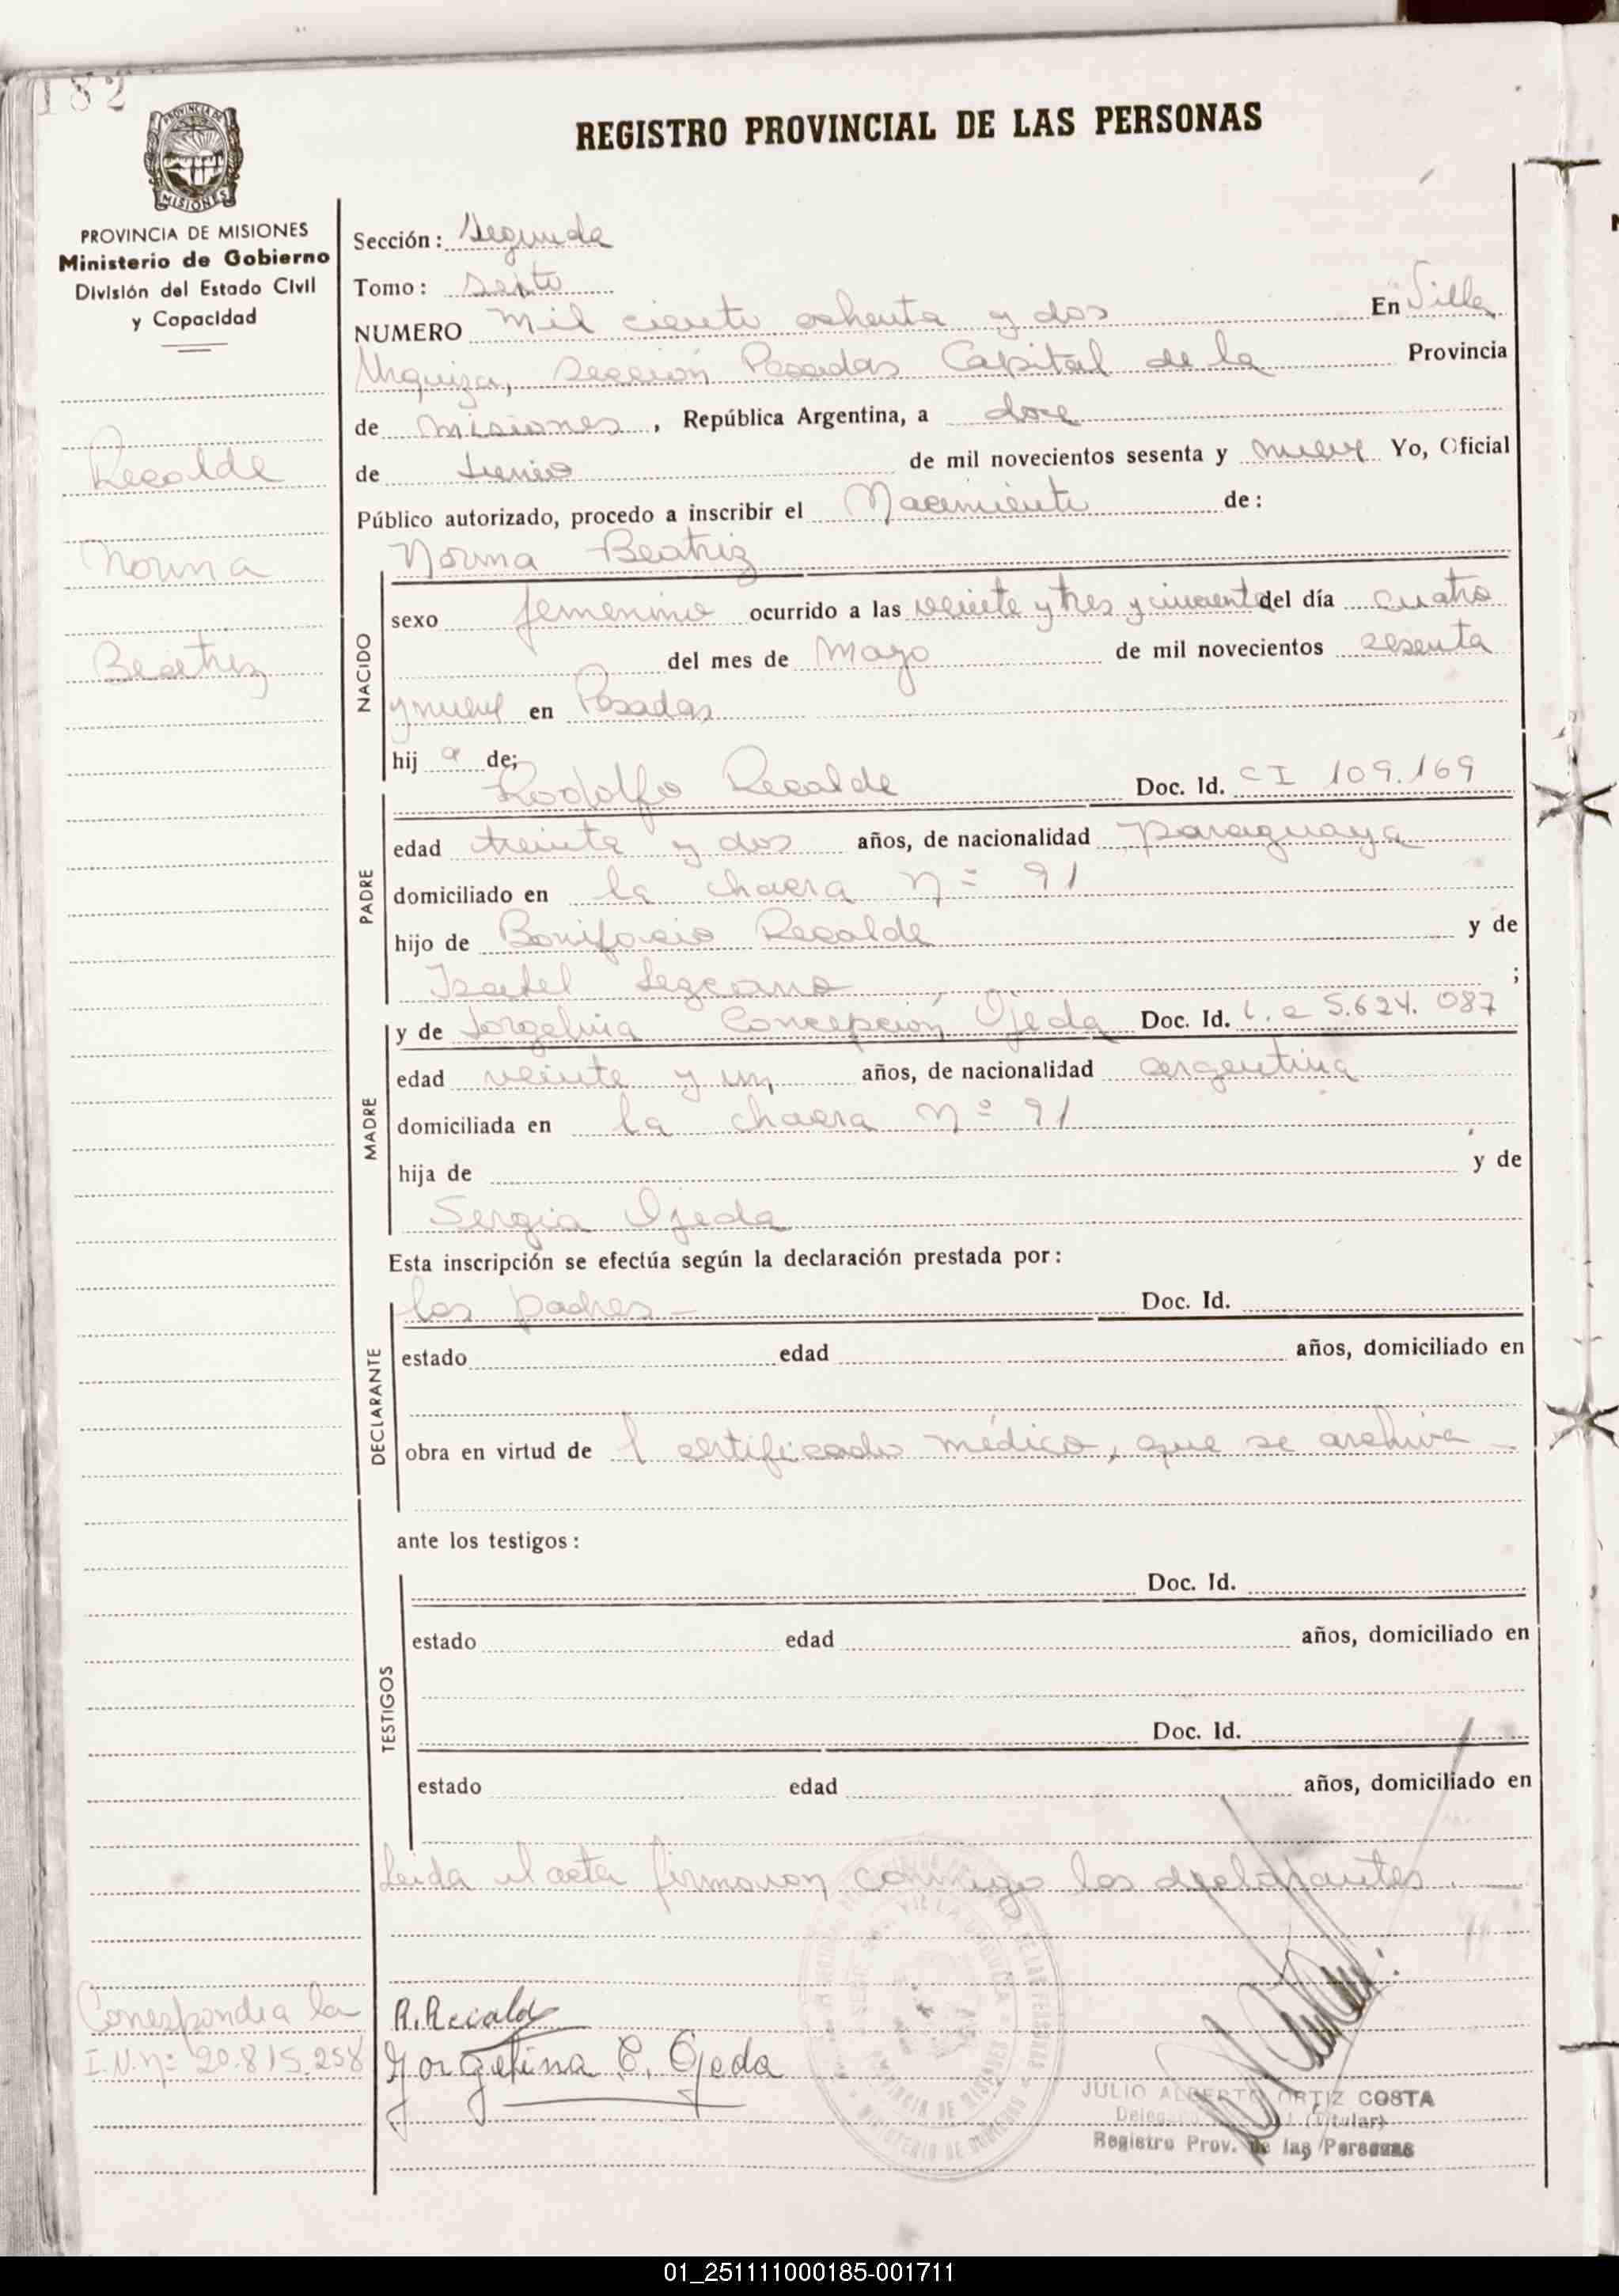 182
REGISTRO PROVINCIAL DE LAS PERSONAS
PROVINCIA DE
MISIONES
PROVINCIA DE MISIONES
Ministerio de Gobierno
División del Estado Civil
y Capacidad
Recalde
Norma
Beatriz
Sección: Segunda
Tomo: Sexto
NUMERO mil ciento ochenta y dos En Villa
Urquiza, Sección Posadas Capital de la Provincia
de Misiones, República Argentina, a doce
de Junio de mil novecientos sesenta y nueve Yo, Oficial
Público autorizado, procedo a inscribir el Nacimiento de:
NACIDO
Norma Beatriz
sexo femenino ocurrido a las veinte y tres y cincuenta del día cuatro
del mes de Mayo de mil novecientos sesenta
y nueve en Posadas
hij a de;
PADRE
Rodolfo Recalde Doc. Id. CI 109.169
edad treinta y dos años, de nacionalidad paraguaya
domiciliado en la chacra nº 91
hijo de Bonifacio Recalde y de
Isabel Lezcano ;
MADRE
y de Jorgelina Concepción Ojeda Doc. Id. L.C 5.624.087
edad veinte y un años, de nacionalidad argentina
domiciliada en la chacra nº 91
hija de y de
Sergia Ojeda
Esta inscripción se efectúa según la declaración prestada por:
DECLARANTE
los padres- Doc. Id.
estado edad años, domiciliado en
obra en virtud de l certificado médico, que se archiva -
ante los testigos:
TESTIGOS
Doc. Id.
estado edad años, domiciliado en
Doc. Id.
estado edad años, domiciliado en
Leida el acta firmaron conmigo los declarantes. -
Correspondia la
I.N.nº 20.815.258
R. Recalde
Jorgelina C. Ojeda
VILLA URQUIZA
PROVINCIA DE MISIONES
MINISTERIO DE GOBIERNO
JULIO ALBERTO ORTIZ COSTA
(Titular)
Registro Prov. de las Personas
01_251111000185-001711